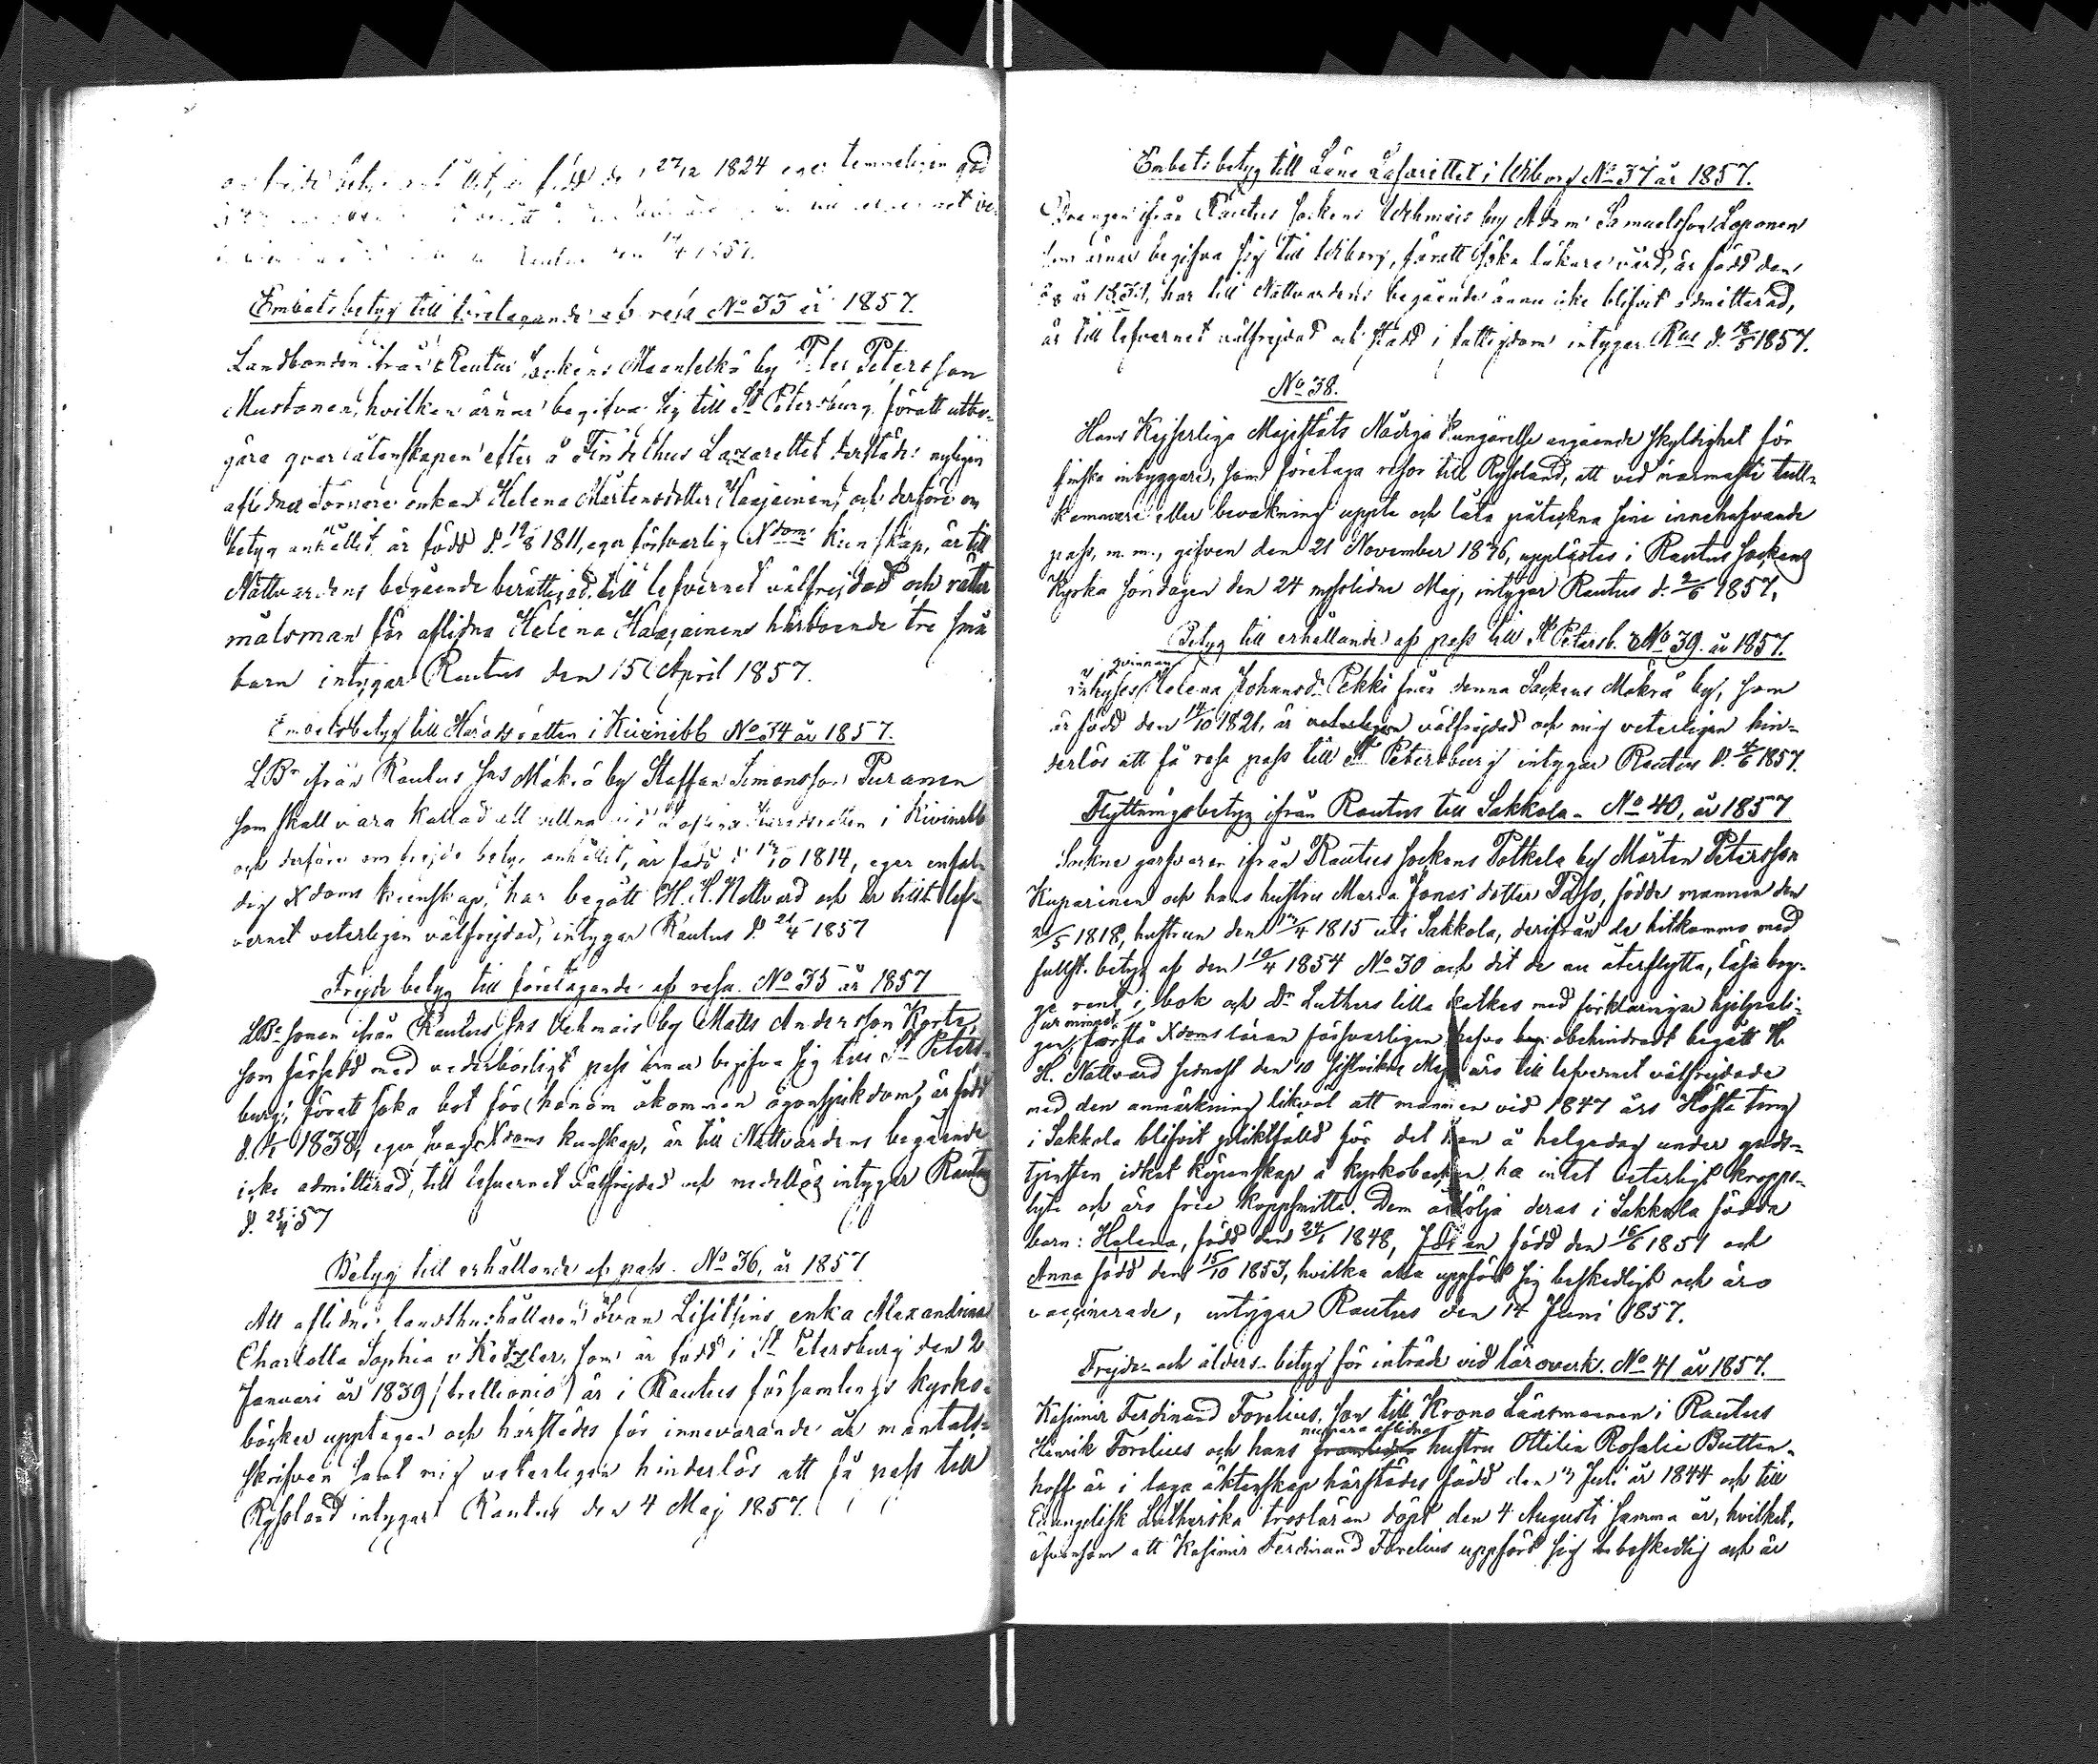 född den 27/12 1824 eger temmeligen god
Rautus den 14/4 1857.
Embetsbetyg till företagande af resa No 33 år 1857.
Landbonden från Rautus Sockens Maanselkä by Peter Petersson
Mustonen, hvilken ärnar begifva sig till St Petersburg, föratt utbe-
gära qvarlåtenskapen efter å Findelhus Lazarettet derstädes nyligen
aflidna Torpare enkan Helena Mårtensdotter Haajainen, och derföre om
betyg anhållit, är född d. 19/8 1811, eger försvarlig Xdoms kunskap, är till
Nattvardens begående berättigad, till lefvernet välfrejdad och rätter
målsman för aflidna Helena Haajainens härboende tre små
barn intygar Rautus den 15 April 1857.
Embetsbetyg till Häradsrätten i Kivinebb No 34 år 1857.
LBn ifrån Rautus Sns Mäkrä by Staffan Simonsson Puranen
som skall vara kallad till vittne vid Häradsrätten i Kivinebb
och derföre om frejde betyg anhållit, är född d. 10 1814, eger enfal-
dig Xdoms kunskap, har begått H. H. Nattvard och är till lef-
vernet veterligen välfrejdad, intygar Rautus d. 21/4 1857
Frejde betyg till företagande af resa. No 35 år 1857
LBe sonen ifrån Rautus Sns Vehmais by Matts Andersson Korte,
som försedd med vederbörligt pass ärnar begifva sig till St Peters-
burg, föratt söka bot för honom åkommen ögonsjukdom, är född
d. 1838, eger svag Xdoms kunskap, är till Nattvardens begående
icke admitterad, till lefvernet välfrejdad och medellös intygar Rautus
d. 25/4 57
Betyg till erhållande af pass. No 36, år 1857
Att aflidne landthushållaren Ivan Lisitsins enka Alexandrina
Charlotta Sophia v Ketzler, som är född i St Petersburg den 2
Januari år 1839 (trettionio) är i Rautus församlings kyrko-
böcker upptagen och härstädes för innevarande år mantals-
skrifven samt mig veterligen hinderlös att få pass till
Ryssland intygar Rautus den 4 Maj 1857.
Embets betyg till Läne Lasarettet i Wiborg No 37 år 1857.
Drängen ifrån Rautus Sockens Wehmais by Adam Samuelsson Loponen
som ärnar begifva sig till Wiborg, föratt söka läkare vård, är född den
år 1831, har till Nattvardens begående ännu icke blifvit admitterad,
är till lefvernet välfrejdad och stadd i fattigdom intygar Rus d. 18/5 1857.
No 38.
Hans Kejserliga Majestäts Nådiga Kungörelse angående skyldighet för
finska inbyggare, som företaga resor till Ryssland, att vid närmaste tull-
kammare eller bevakning uppte och låta påteckna sine innehafvande
pass, m. m., gifven den 21 November 1876, upplästes i Rautus Sockens
Kyrka söndagen den 24 nästlidne Maj, intygar Rautus d. 2/6 1857.
Betyg till erhållande af pass till St Petersb. No 39. år 1857.
qvinnan
Inhyses Helena Johansd. Pekki från denna Sockens Mäkrä by, som
är född den 14/10 1821, är veterligen välfrejdad och mig veterligen hin-
derlös att få resa pass till St Petersburg intygar Rautus d. 4/6 1857.
Flyttningsbetyg ifrån Rautus till Sakkola. No 40, år 1857
Sockne garfvaren ifrån Rautus Sockens Potkela by Mårten Petersson
Kuparinen och hans hustru Maria Jonas dotter Paso, födde mannen den
2/5 1818, hustrun den /4 1815 uti Sakkola, derifrån de hitkommo med
fullst. betyg af den 10/4 1854 No 30 och dit de nu återflytta, läsa beg-
ge rent i bok och Dr Luthers lilla katkes med förklaringar hjelpeli-
ur minnet
gen, förstå Xdomsläran försvarligen, hafva obehindradt begått H.
H. Nattvard sednast den 10 sistvikne Maj äro till lefvernet välfrejdade
med den anmärkning likväl att mannen vid 1847 års Höste ting
i Sakkola blifvit pliktfälld för det han å helgedag under guds-
tjensten idkat köpenskap å kyrkobacken, ha intet veterligt kropps-
lyte och äro frie koppsmitta. Dem åtfölja deras i Sakkola födda
barn: Helena, född den 24/1 1848, Johan född den 16/6 1851 och
Anna född den 15/10 1853, hvilka alla uppfört sig beskedligt och äro
vaccinerade, intygar Rautus den 14 Juni 1857.
Frejde- och ålders-betyg för inträde vid läroverk. No 41 år 1857.
Kasimir Ferdinand Forelius, son till Krono Länsmannen i Rautus
numera aflidna
Henrik Forelius och hans framlidna hustru Ottilia Rosalie Butten-
hoff är i laga äktenskap härstädes född den Juli år 1844 och till
Evangelisk Lutherska trosläran döpt den 4 Augusti samma år, hvilket,
äfvensom att Kasimir Ferdinand Forelius uppfört sig beskedlig och är